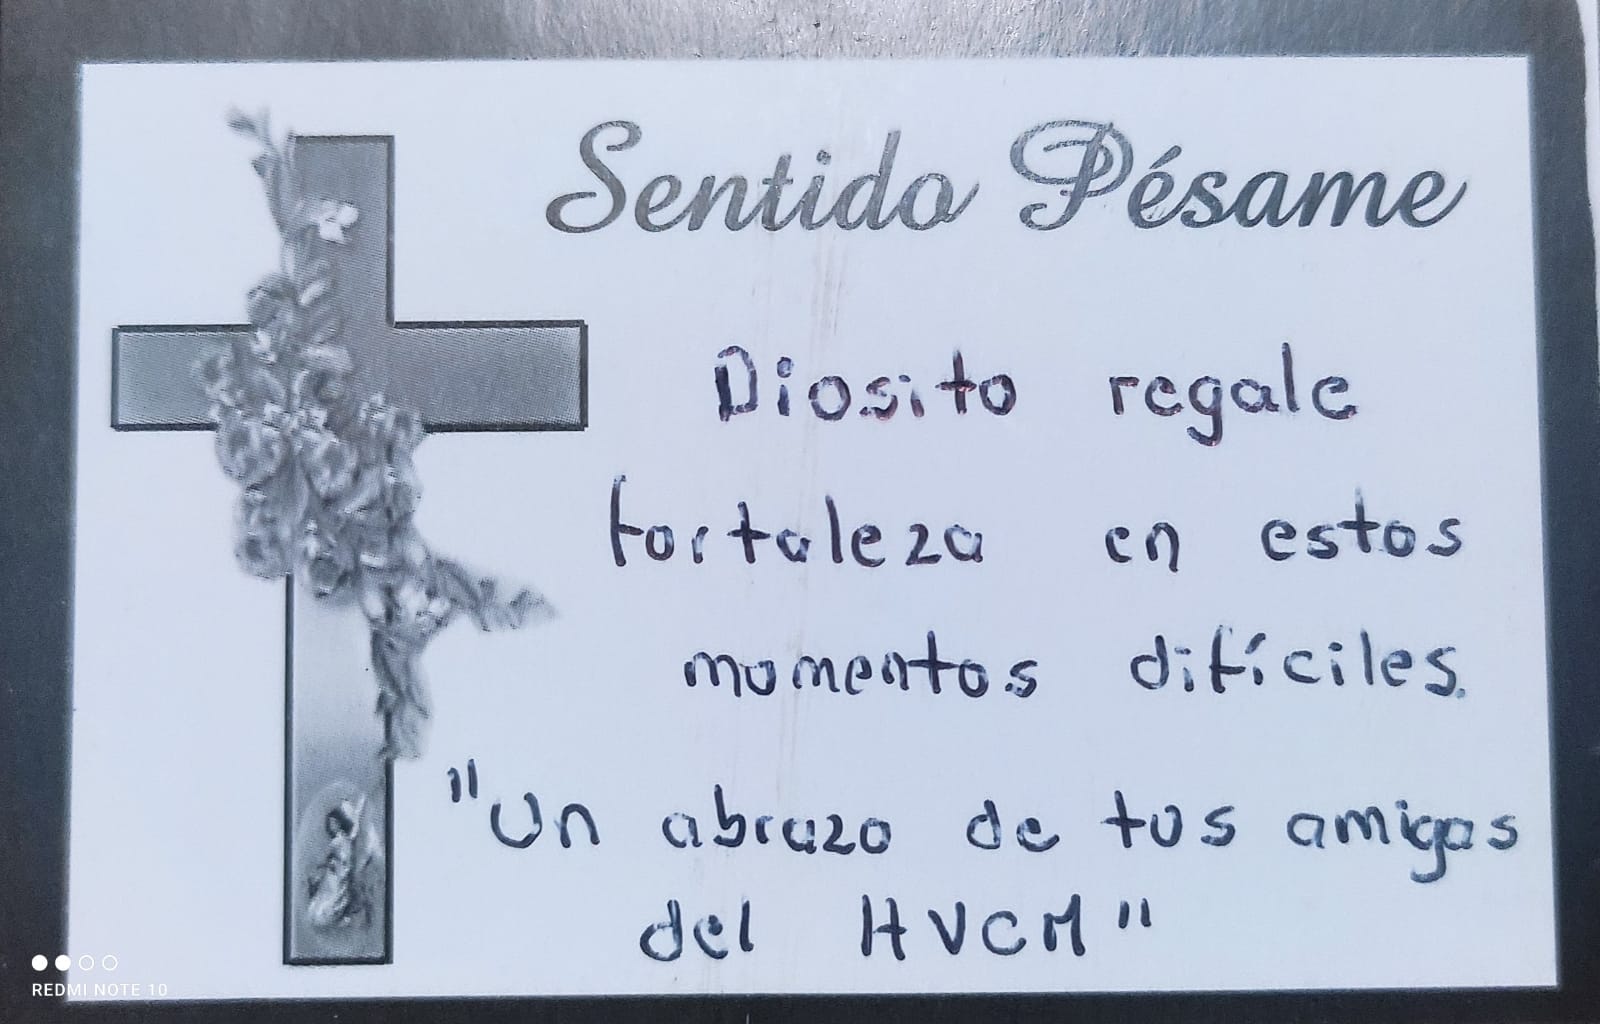 Sentido Pésame
Diosito regale
fortaleza en estos
momentos difíciles.
"Un abrazo de tus amigas
del HVCM"
REDMI NOTE 10